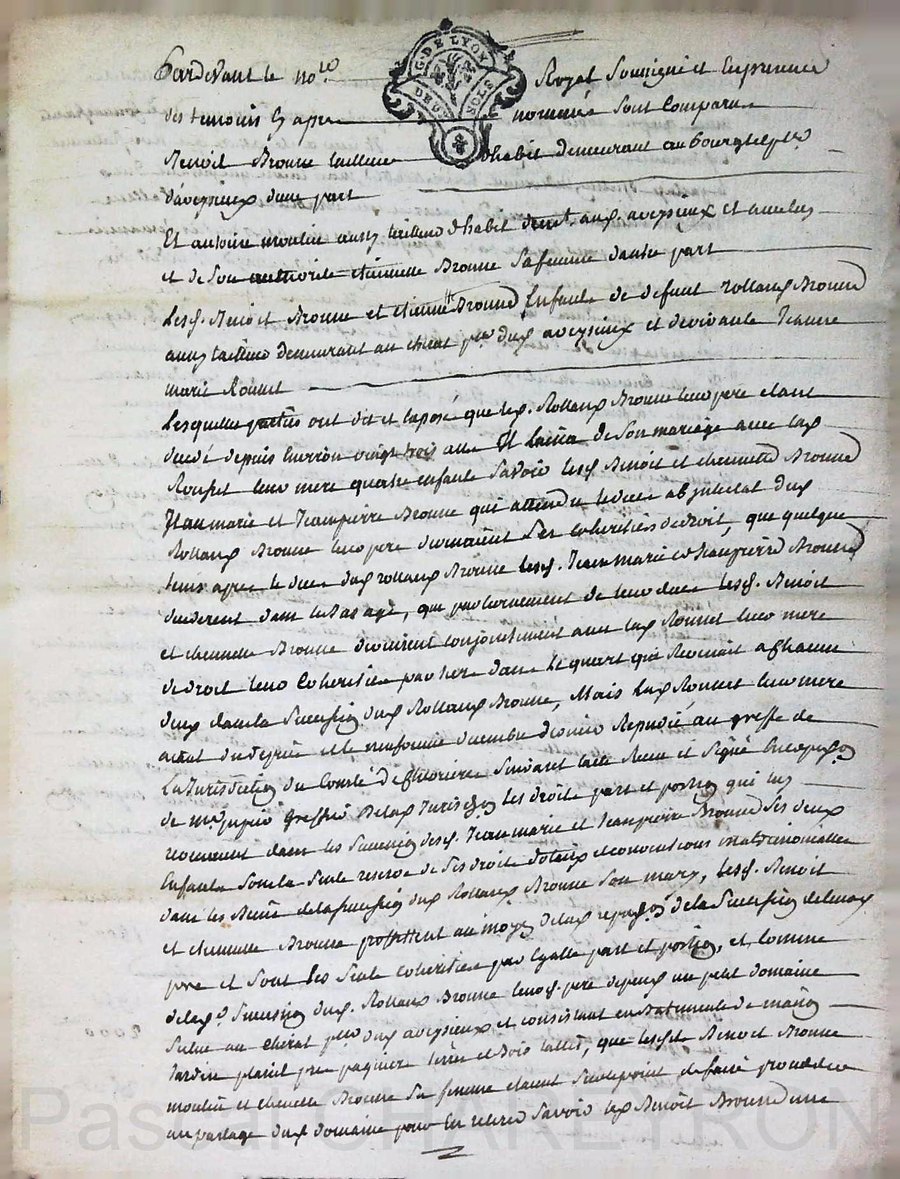 G. DE LYON
DEUX SOLS
Pardevant le no.re Royal Soussigné et En presence
des temoins Cy apres nommés sont Comparus
Benoit Bronne tailleur d'habit demeurant au bourg
d'aveysieux d'une part
Et antoine moulin aussy tailleur d'habit aud. aveysieux et
et de Son authorité etiennette Bronne Sa femme d'autre part
Lesd. Benoit Bronne et etiennette Bronne Enfants de deffunt Rolland Bronne
aussy tailleur demeurant au cherat p.sse dud. aveysieux et de vivante Jeanne
marie Rousset
Lesquelles parties ont dit et Exposé que led. Rolland Bronne leur pere etant
decedé depuis Environ vingt trois ans Il laissa de Son mariage avec lad.
Rousset leur mere quatre enfants Savoir lesd. Benoit et etiennette Bronne
Jean marie et Jean pierre Bronne qui attendu le deces ab intestat dud.
Rolland Bronne leur pere Ses Coheritiers de droit, que quelque
tems apres le deces dud. Rolland Bronne lesd. Jean marie et Jean pierre Bronne
decederent dans le bas age, que par l'evenement de leur deces lesd. Benoit
et etiennette Bronne devinrent conjointement avec lad. Rousset leur mere
de droit leurs Coheritiers par tiers dans le quart qui Revenoit a Chacun
d'eux dans la Succession dud. Rolland Bronne, Mais lad. Rousset leur mere
ayant du depuis et le decembre dernier Repudié au greffe de
la Jurisdiction du Comté de Suivant l'acte Recu et Signé
de m.e greffier de lad. Jurisd.on les droits part et portion qui lui
revenoient dans les Successions desd. Jean marie et Jean pierre Bronne Ses deux
Enfants Sous la Seule reserve de Ses droits dotaux et conventions matrimonialles
dans les Biens de la Succession dud. Rolland Bronne Son mary, lesd. Benoit
et etiennette Bronne profittent au moyen de lad. de la Succession de leurd.
pere et Sont Les Seuls Coheritiers par Egalle part et portion, et Comme
de lad. Succession dud. Rolland Bronne leurd. pere depend un petit domaine
Situé au cherat p.sse dud. aveysieux et consistant en Batiments de maison
Jardin plassit pre paquier terres et Bois taillis, que lesd. Benoit Bronne
moulin et etiennette Bronne Sa femme etant Sur le point de faire proceder
au partage dud. domaine pour En retirer Savoir led. Benoit Bronne une
Pascal CHAREYRON